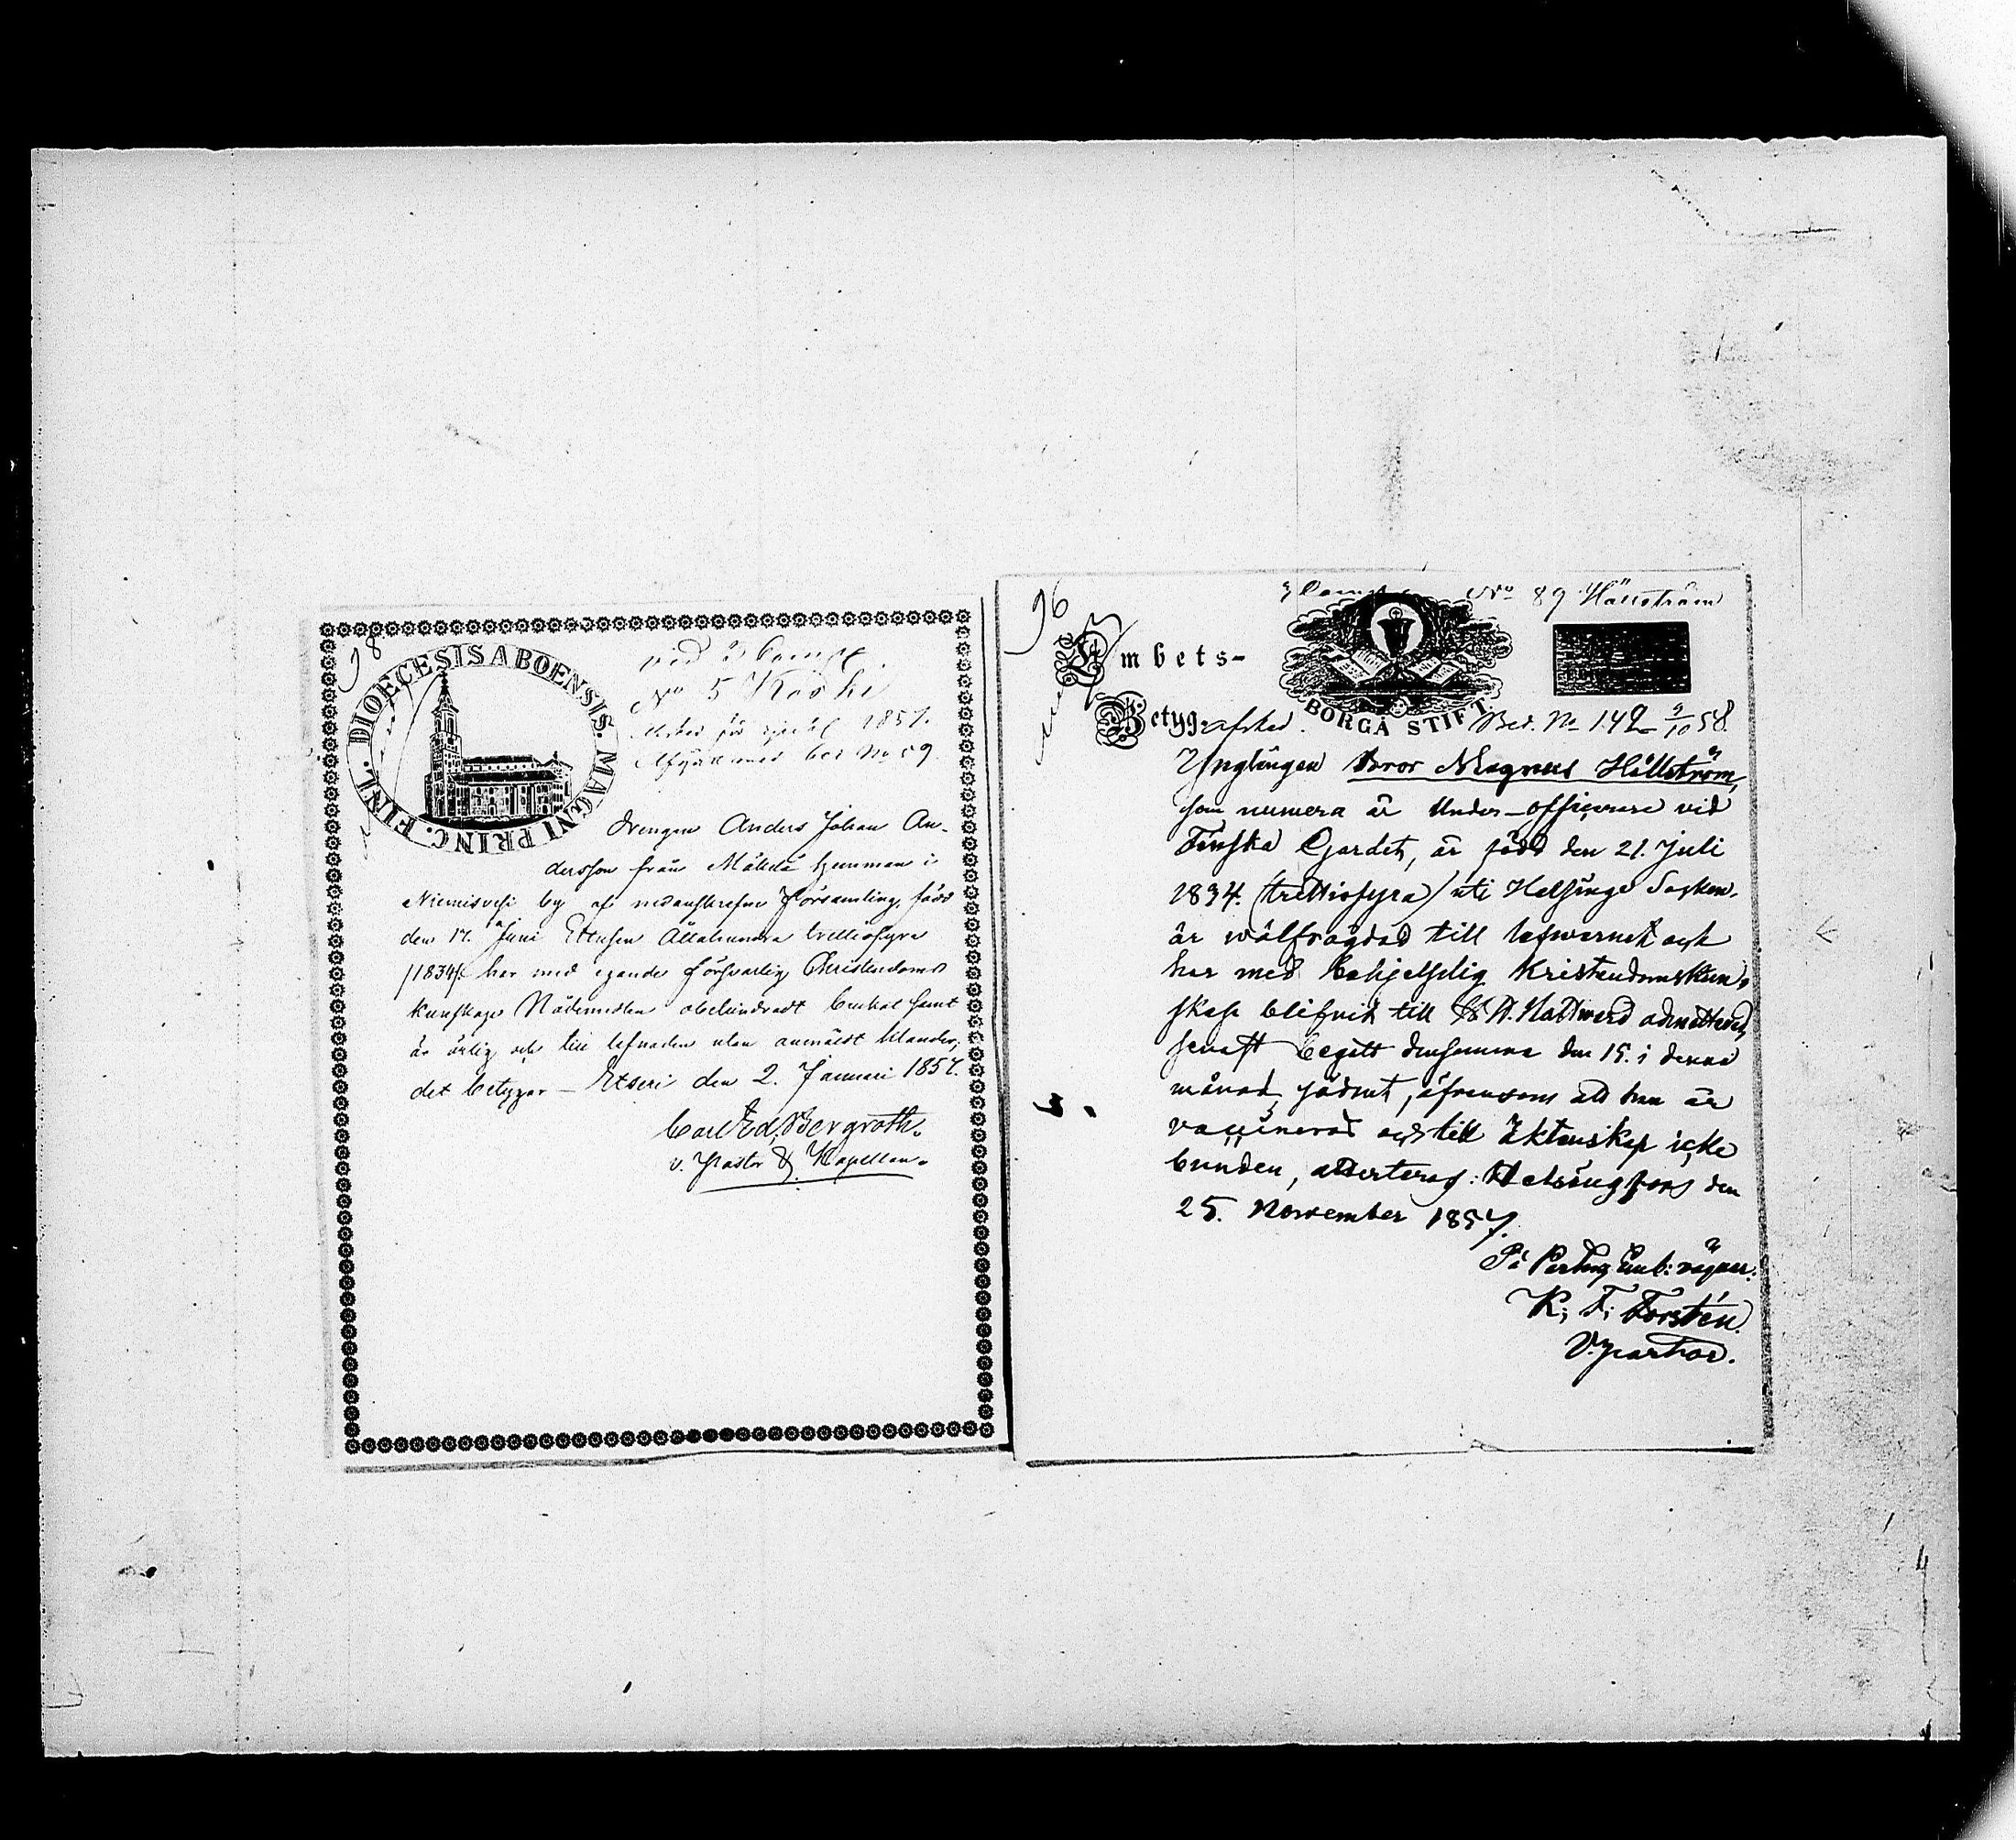 98
DIOECESIS ABOENSIS. MAGNI PRINC. FINL.
vid 2 Comp.
No 5 Koski
1857.
No 59.
Drengen Anders Johan An-
dersson från Mäkelä hemman i
Niemisvesi by af nedanskrefne Församling, född
den 17. Juni Ettusen Åttahundra trettiofyra
/1834/, har med egande försvarlig Christendoms
kunskap Nådemedlen obehindradt brukat samt
är ärlig och till lefnaden utan anmäldt klander;
det betygar – Etseri den 2. Januari 1857.
Carl Ed. Bergroth.
v. Pastor & Kapellan.
96
No 89 Hällström
Embets-
Betyg. afsked.
BORGÅ STIFT.
Bet. No 142 9/10 58.
Ynglingen Bror Magnus Hällström,
som numera är Under-officerare vid
Finska Gardet, är född den 21. Juli
1834. (trettiofyra) uti Helsinge Socken,
är wälfrägdad till lefwernet och
har med behjelplig Kristendomskun-
skap blifvit till H. H. Nattward admitterad,
senast begått densamma den 15. i denna
månad, födent, äfvensom att han är
vaccinerad och till Äktenskap icke
bunden, atterteras: Helsingfors den
25. November 1857.
På Past. Emb: vägnar:
K. F. Forstén.
V. pastor.